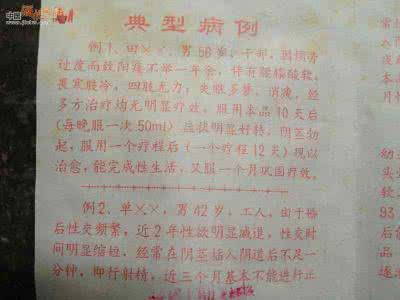 典型病例
例1、田××,男56岁,干部,因烦劳
过度而致阳痿不举一年余,伴有腰膝酸软,
畏寒肢冷,四肢无力,失眠多梦,消瘦,经
多方治疗均无明显疗效。服用本品10天后
(每晚服一次50ml)症状明显好转,阴茎勃
起,服用一个疗程后(一个疗程12天)现以
治愈,能完成性生活,又服一个月巩固疗效。
例2、单××,男42岁,工人,由于婚
后性交频繁,近2年性欲明显减退,性交时
间明显缩短,经常在阴茎插入阴道后不足一
分钟,即行射精,近三个月基本不能进行正